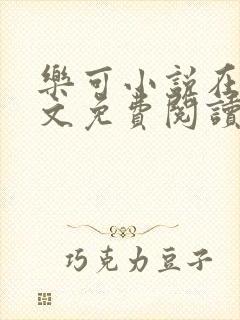 樂可小說在
文免費閱讀
巧克力豆子